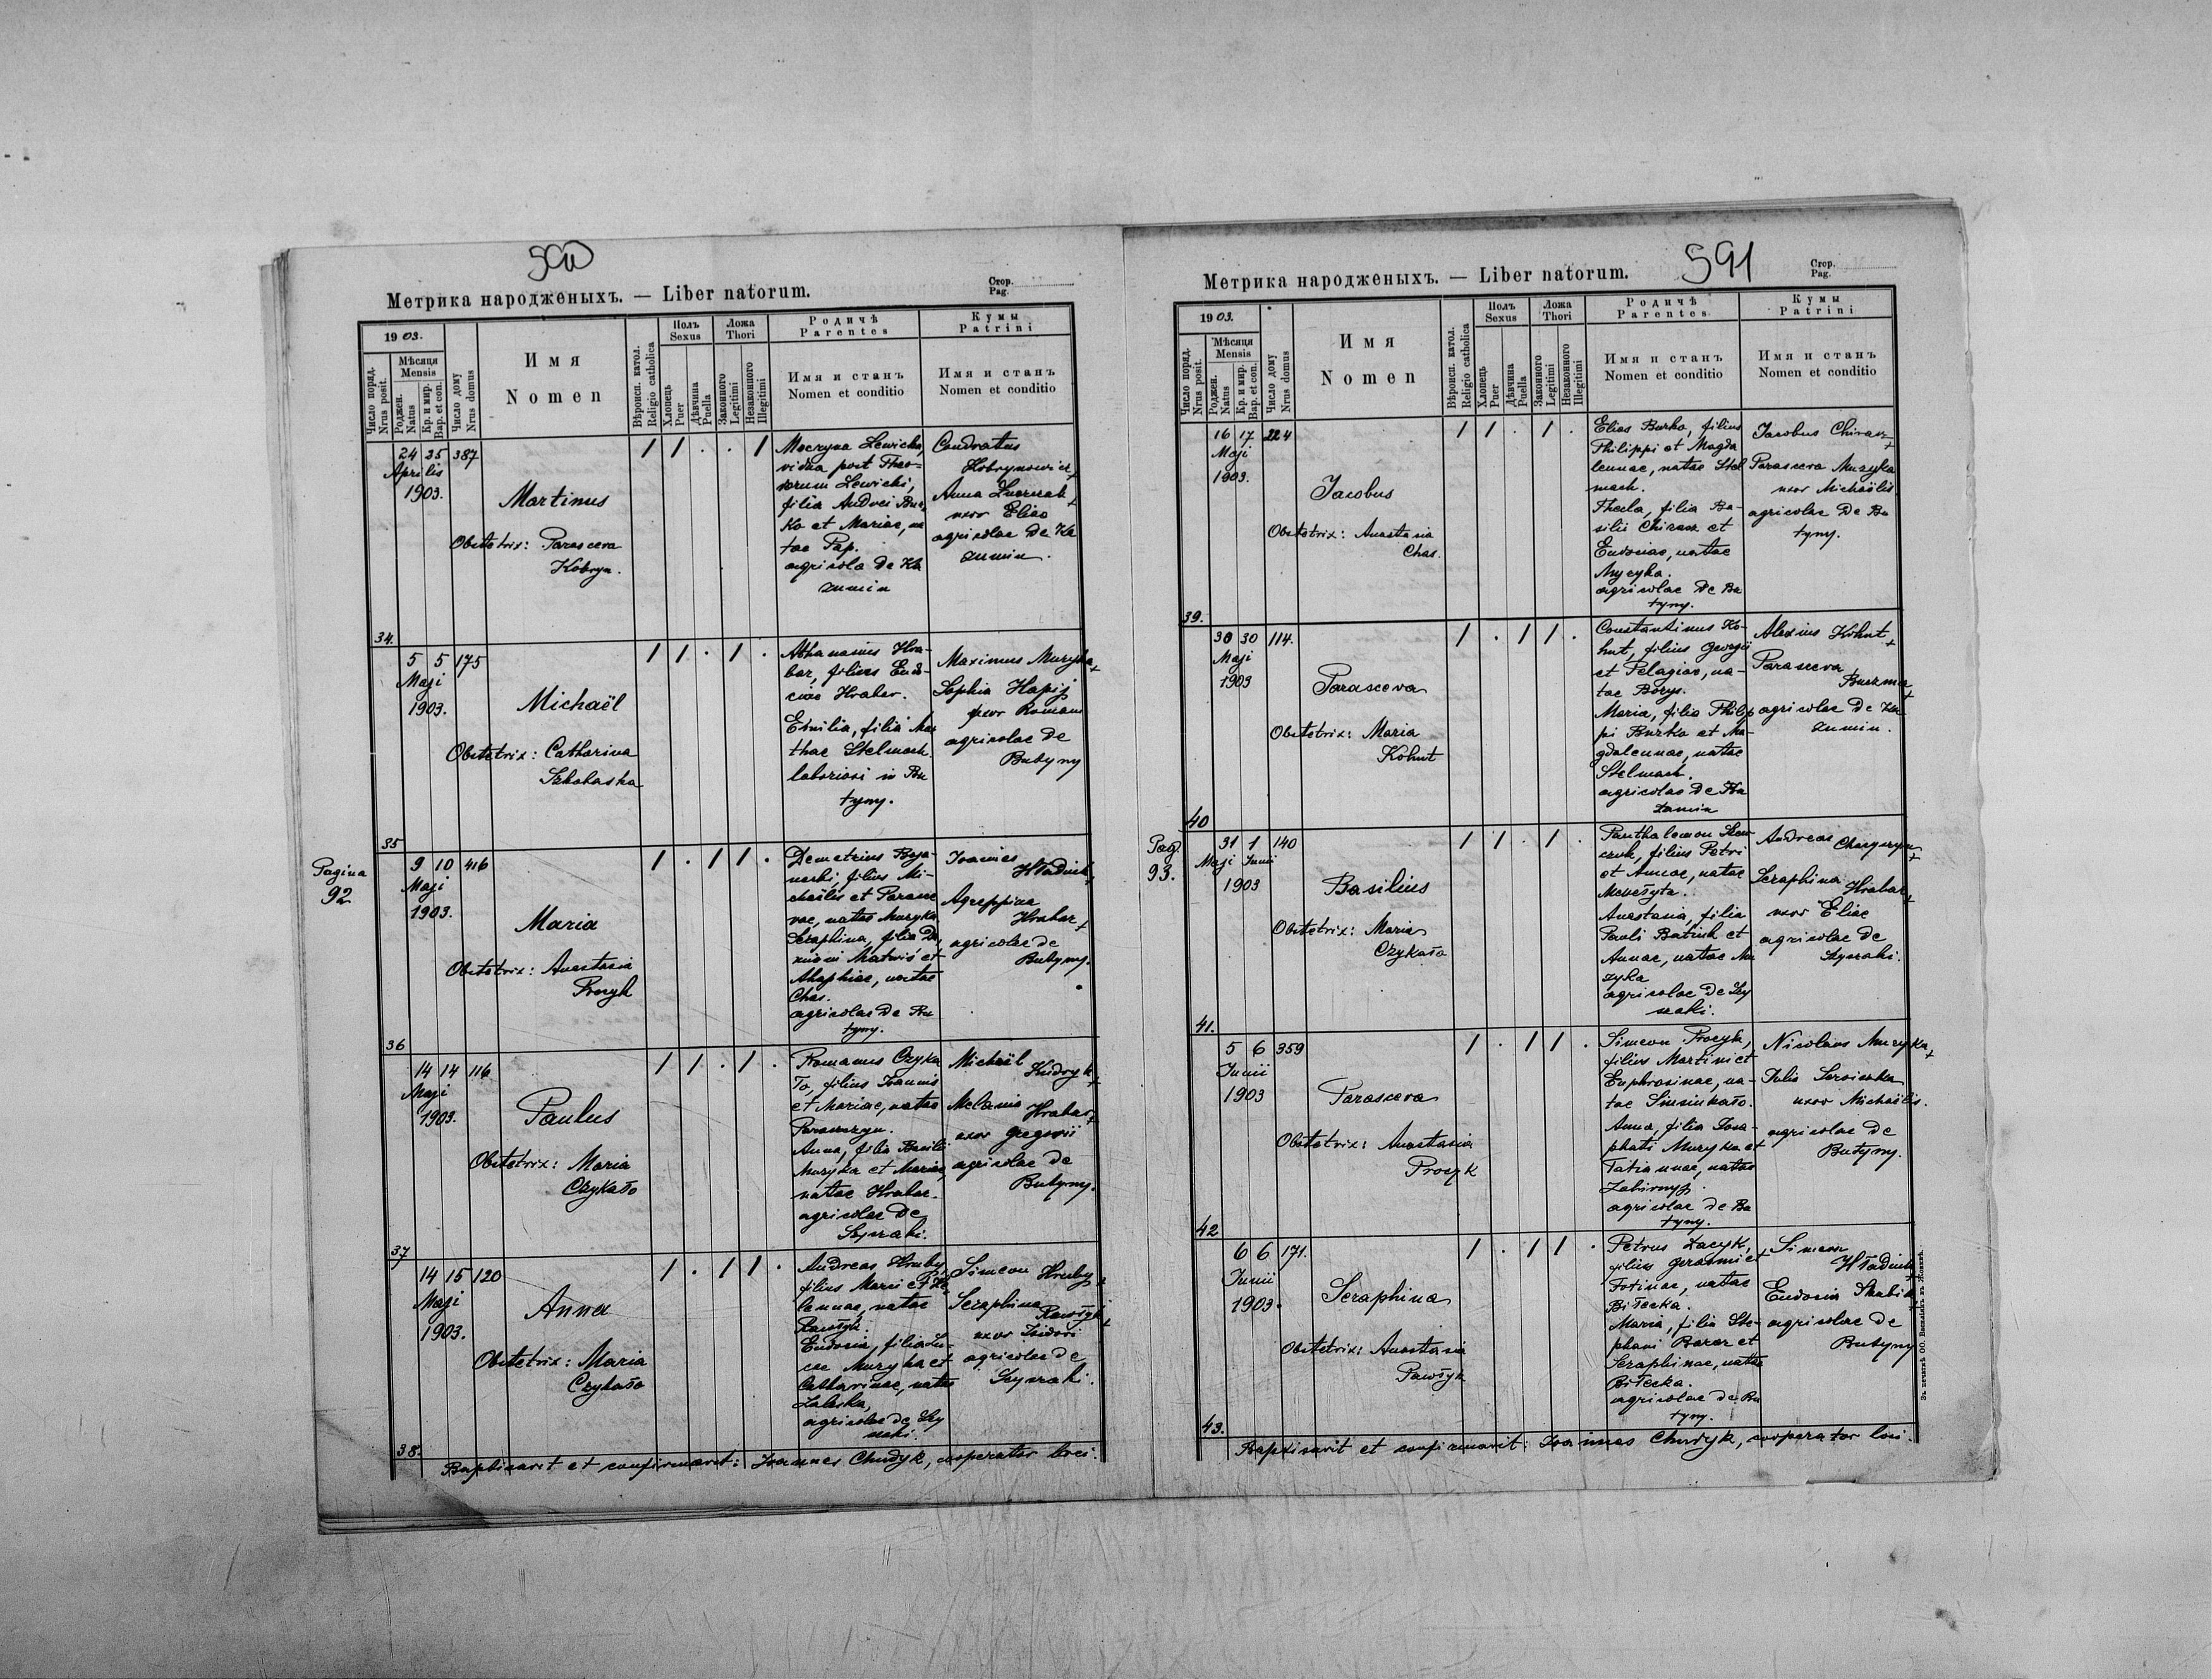 590
Метрика народженыхъ. — Liber natorum.
Стор.
Pag.
1903.
Число поряд.
Nrus posit.
Мѣсяця
Mensis
Роджен.
Natus
Кр. и мир.
Bap. et con.
Число дому
Nrus domus
Имя
Nomen
Вѣроисп. катол.
Religio catholica
Полъ
Sexus
Хлопець
Puer
Дѣвчина
Puella
Ложа
Thori
Законного
Legitimi
Незаконного
Illegitimi
Родичѣ
Parentes
Имя и станъ
Nomen et conditio
Кумы
Patrini
Имя и станъ
Nomen et conditio
34.
24 25 387
Aprilis
1903.
Martinus
Obstetrix: Parasceva
Kobryn.
1 1 . . 1
Macryna Lewicka,
vidua post Theo-
dorum Lewicki,
filia Andrei Bur
ko et Mariae, na
tae Pap.
agricola de Ka
zumin
Condratus
Hobrynowicz +
Anna
uxor Eliae
agricolae de Ka
zumin.
35
5 5 175
Maji
1903.
Michaël
Obstetrix: Catharina
Szkolaska
1 1 . 1 .
Athanasius Hra-
bar, filius Eudo-
ciae Hrabar.
Emilia, filia Mar
thae Stelmach.
laboriosi in Bu
tyny.
Maximus Muzyka +
Sophia Hapij
uxor Romani
agricolae de
Butyny
Pagina
92.
36
9 10 416
Maji
1903.
Maria
Obstetrix: Anastasia
Procyk
1 . 1 1 .
Demetrius Boja-
narski, filius Mi-
chaëlis et Parasce
vae, natae Muzyka
Seraphina, filia Da
miani Matwiś et
Ahaphiae, natae
Chas.
agricolae de Bu
tyny.
Joannes
Hładiuk +
Agreppina
Hrabar +
agricolae de
Butyny.
37
14 14 116
Maji
1903.
Paulus
Obstetrix: Maria
Czykało
1 1 . 1 .
Romanus Czyka
ło, filius Joannis
et Mariae, natae
Paraszczyn.
Anna, filia Basilii
Muzyka et Mariae,
natae Hrabar.
agricolae de
Szyszaki.
Michaël
Hidryk +
Melania Hrabar +
uxor Gregorii
agricolae de
Butyny.
38.
14 15 120
Maji
1903.
Anna
Obstetrix: Maria
Czykało
1 . 1 1 .
Andreas Hruby,
filius Marci et He
lennae, natae
Pawłyk.
Eudocia, filia Lu-
cae Muzyka et
Catharinae, natae
Zaleska,
agricolae de Szy
szaki.
Simeon Hruby +
Seraphina Pawłyk +
uxor Isidori
agricolae de
Szyszaki.
Baptisavit et confirmavit: Joannes Chudyk, cooperator loci.
591
Метрика народженыхъ. — Liber natorum.
Стор.
Pag.
1903.
Число поряд.
Nrus posit.
Мѣсяця
Mensis
Роджен.
Natus
Кр. и мир.
Bap. et con.
Число дому
Nrus domus
Имя
Nomen
Вѣроисп. катол.
Religio catholica
Полъ
Sexus
Хлопець
Puer
Дѣвчина
Puella
Ложа
Thori
Законного
Legitimi
Незаконного
Illegitimi
Родичѣ
Parentes
Имя и станъ
Nomen et conditio
Кумы
Patrini
Имя и станъ
Nomen et conditio
39.
16 17 224
Maji
1903.
Jacobus
Obstetrix: Anastasia
Chas.
1 1 . 1 .
Elias Burko, filius
Philippi et Magda
lennae, natae Stel
mach.
Thecla, filia Ba-
silii Chiraz et
Eudociae, natae
Muzyka.
agricolae de Bu
tyny.
Jacobus Chiraz +
Parasceva Muzyka
uxor Michaëlis
agricolae de Bu
tyny.
40
30 30 114.
Maji
1903
Parasceva
Obstetrix: Maria
Kohut
1 . 1 1 .
Constantinus Ko-
hut, filius Georgii
et Pelagiae, na-
tae Borys.
Maria, filia Philip
pi Burko et Ma-
gdalennae, natae
Stelmach.
agricolae de Ka
zumin
Alexius Kohut +
Parasceva
Buczma +
agricolae de Ka
zumin.
Pag.
93.
41.
31 1 140
Maji Junii
1903
Basilius
Obstetrix: Maria
Czykało
1 1 . 1 .
Panthalemon Szew
czuk, filius Petri
et Annae, natae
Anastasia, filia
Pauli Batiuk et
Annae, natae Mu
zyka
agricolae de Szy
szaki.
Andreas
Seraphina Hrabar +
uxor Eliae
agricolae de
Szyszaki.
42
5 6 359
Junii
1903
Parasceva
Obstetrix: Anastasia
Procyk
1 . 1 1 .
Simeon Procyk,
filius Martini et
Euphrosinae, na-
tae Sinsinkało.
Anna, filia Josa-
phati Muzyka et
Tatiannae, natae
Zabirnyj.
agricolae de Bu
tyny.
Nicolaus Muzyka +
Julia
uxor Michaëlis.
agricolae de
Butyny.
43.
6 6 171.
Junii
1903.
Seraphina
Obstetrix: Anastasia
Pawłyk
1 . 1 1 .
Petrus Łacyk,
filius Gerasimi et
Fotinae, natae
Biłecka.
Maria, filia Ste-
phani Barar et
Seraphinae, natae
Biłecka.
agricolae de Bu
tyny.
Simeon
Hładiuk +
Eudocia Skubik +
agricolae de
Butyny
Baptisavit et confirmavit: Joannes Chudyk, cooperator loci.
Зъ печатнѣ ОО. Василіянъ въ Жовквѣ.